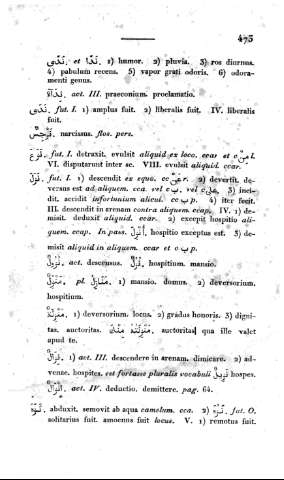 475
نَدَى et نَدًا 1) humor. 2) pluvia. 3) ros diurnus.
4) pabulum recens. 5) vapor grati odoris. 6) odora-
menti genus.
act. III. praeconium. proclamatio.
fut. I. 1) amplus fuit. 2) liberalis fuit. IV. liberalis
fuit.
نرجس. narcissus. flos. pers.
نزع. fut. I. detraxit. evulsit aliquid ex loco. ccar et c l.
VI. disputarunt inter se. VIII. evulsit aliquid. ccar.
نزل. fut. I. 1) descendit ex equo. cc عن r. 2) devertit. de-
versus est ad aliquem. cca. vel c ب. vel c على 3) inci-
dit, accidit infortunium alicui. cc ب p. 4) iter fecit.
III. descendit in arenam contra aliquem. ccap. IV. 1) de-
misit. deduxit aliquid. ccar. 2) excerpit hospitio ali-
quem. ccap. In pass. أنزل. hospitio exceptus est. 3) de-
misit aliquid in aliquem. ccar et c ب p.
نزول. act. descensus. نزل. hospitium. mansio.
منزل. pl. منازل. 1) mansio. domus. 2) deversorium.
hospitium.
منزلة. 1) deversorium. locus. 2) gradus honoris. 3) digni-
tas. auctoritas. auctoritas, qua ille valet
apud te.
نزال. 1) act. III. descendere in arenam. dimicare. 2) ad-
venae. hospites. est fortasse pluralis vocabuli نزيل hospes.
إنزال. act. IV. deductio. demittere. pag. 64.
نزه. abduxit. semovit ab aqua camelum. cca. 2) نزه. fut. O.
solitarius fuit. amoenus fuit locus. V. 1) remotus fuit.